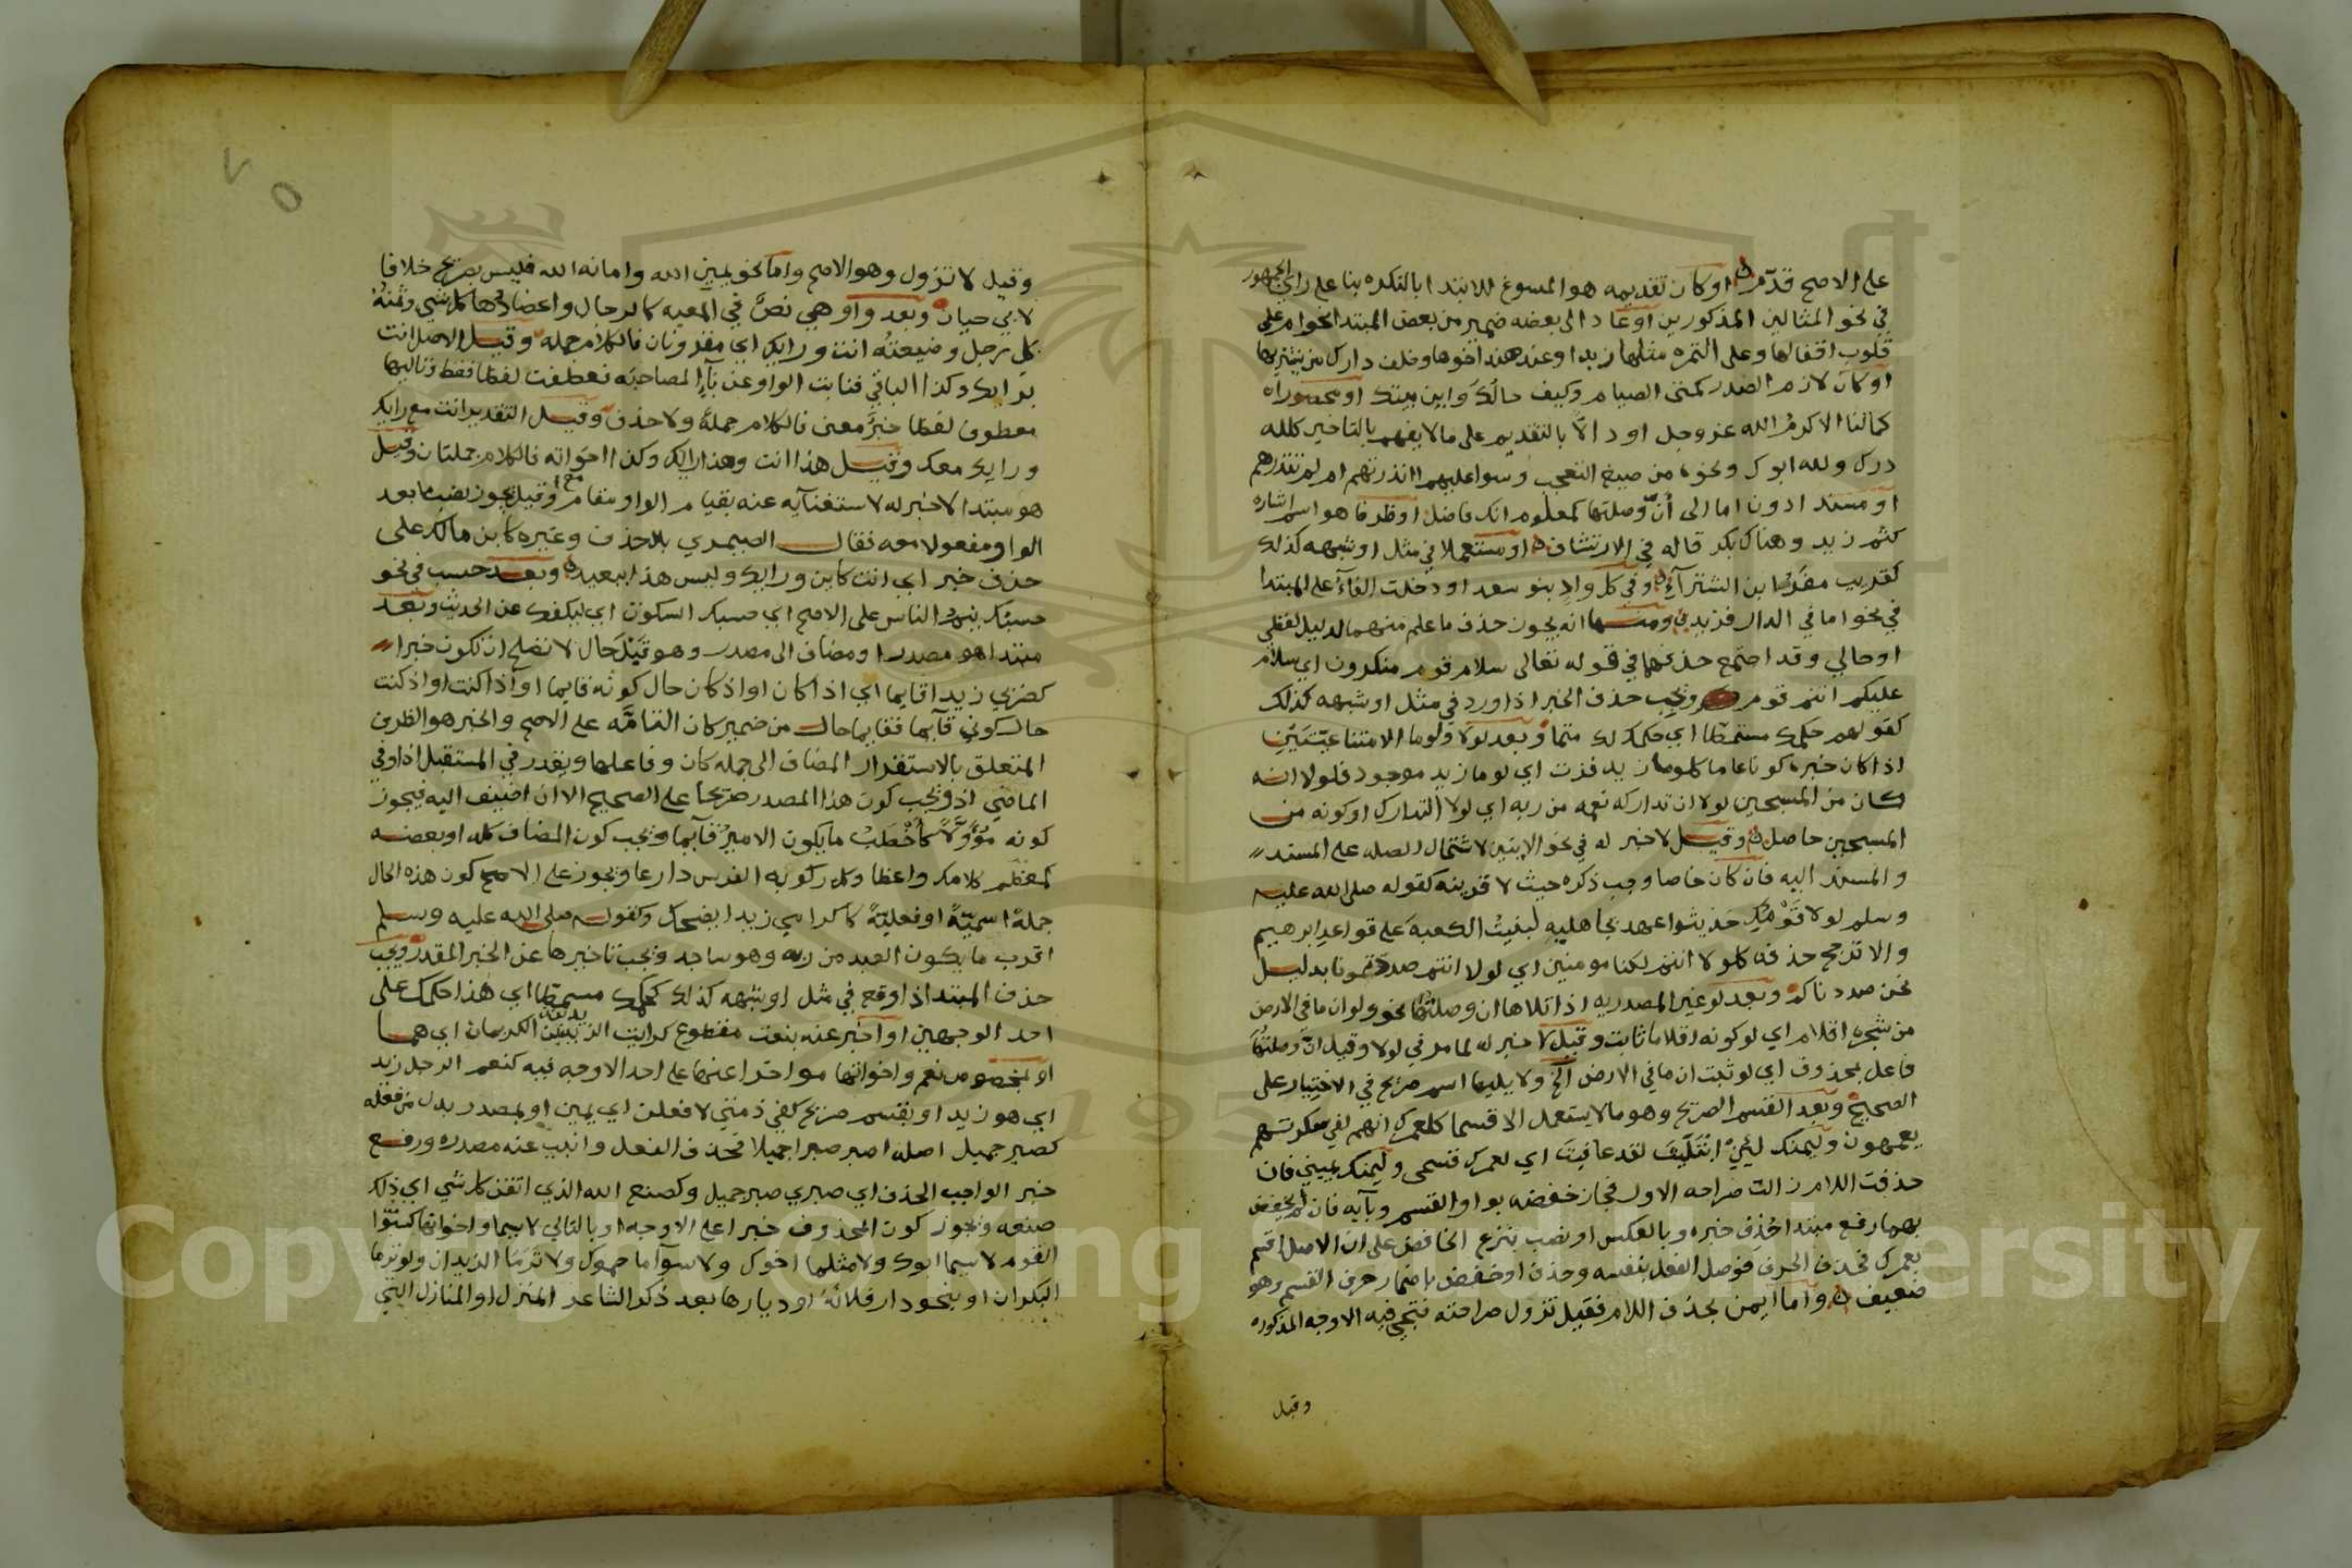 على الاصح قدم او كان تقديمه هو المسوغ للابتدا بالنكره بنا على راي الجمهور
في نحو المثالين المذكورين او عاد الى بعضه ضمير من بعض المبتدا نحو ام على
قلوب اقفالها وعلى التمره مثلها زبدا وعند هند اخوها وخلف دارك من يشتريها
او كان لازم الصدر كمتى الصيام وكيف حالك واين بيتك او محصورا
كمالنا الاكرم الله عز وجل او دالا بالتقديم على ما لا يفهم بالتاخير كلله
درك ولله ابوك ونحوه من صيغ التعجب وسوا عليهم اانذرتهم ام لم تنذرهم
او مسند ادون اما الى ان وصلتها كمعلوم انك فاضل او ظرفا هو اسم اشاره
كثم زيد وهناك بكر قاله في الارتشاف او مستعملا في مثل او شبهه كذلك
وفي كل واد بنو سعد او دخلت الفآء على المبتدا
في نحو اما في الدار فزيد ومنها انه يجوز حذف ما علم منهما لدليل لفظي
او حالي وقد اجتمع حذفهما في قوله تعالى سلام قوم منكرون اي سلام
عليكم انتم قوم ويجب حذف الخبر اذا ورد في مثل او شبهه كذلك
كقولهم حكمك مسمطا اي حكمك لك متما وبعد لولا ولوما الامتناعيتين
اذا كان خبره كونا عاما كلوما زيد فزت اي لوما زيد موجود فلولا انه
كان من المسبحين لولا ان تداركه نعمه من ربه اي لولا التدارك او كونه من
المسبحين حاصل وقيل لا خبر له في نحو الايتين لاشتمال الصله على المسند
والمسند اليه فان كان خاصا وجب ذكره حيث لا قرينه كقوله صلى الله عليه
وسلم لولا قومك حديثوا عهد بجاهليه لبنيت الكعبه على قواعد ابرهيم
والا ترجح حذفه كلولا انتم لكنا مومنين اي لولا انتم صددتمونا بدليل
نحن صددناكم وبعد لو غير المصدريه اذا تلاها ان وصلتها نحو ولو ان ما في الارض
من شجره اقلام اي لو كونه اقلاما ثابت وقيل لا خبر له لما مر في لولا وقيل ان وصلتها
فاعل بمحذوف اي لو ثبت ان ما في الارض الخ ولا يليها اسم صريح في الاختيار على
الصحيح وبعد القسم الصريح وهو ما لا يستعمل الا قسما كلعمرك انهم لفي سكرتهم
يعمهون وليمنك لئن ابتليت لقد عافيت اي لعمرك قسمي وليمنك يميني فان
حذفت اللام زالت صراحه الاول فجاز خفضه بواو القسم وبآيه فان لم يخفض
بهما رفع مبتدا حذف خبره وبالعكس او نصب بنزع الخافض على ان الاصل اقسم
بعمرك فحذف الحرف فوصل الفعل بنفسه وحذف او خفض باضمار حرف القسم وهو
ضعيف واما ايمن بحذف اللام فقيل تزول صراحته فتجي فيه الاوجه المذكوره
وقيل
وقيل لا تزول وهو الاصح واما نحو يمين الله وامانه الله فليس بصريح خلافا
لابي حيان وبعد واو هي نص في المعيه كالرجال واعضادها كل شي وثمنه
كل رجل وضيعته انت ورايك اي مقرونان فالكلام جمله وقيل الاصل انت
برايك وكذا الباقي فنابت الواو عن بآ المصاحبه فعطفت لفظا فقط وتاليها
معطوف لفظا خبر معنى فالكلام جملة ولا حذف وقيل التقدير انت مع رايك
ورايك معك وقيل هذا انت وهذا رايك وكذا اخواته فالكلام جملتان وقيل
هو مبتدا لا خبر له لاستغنآيه عنه بقيام الواو مقام مع وقيل يجوز نصب ما بعد
الواو مفعولا معه فقال الصيمري بلا حذف وغيره كابن مالك على
حذف خبر اي انت كاين ورايك وليس هذا ببعيد وبعد حسب في نحو
حسبك ينم الناس على الاصح اي حسبك السكوت اي ليكفك عن الحديث وبعد
مبتدا هو مصدر او مضاف الى مصدر وهو قبل حال لا تصلح ان تكون خبرا
كضربي زيدا قايما اي اذا كان او اذ كان حال كونه قايما او اذا كنت او اذ كنت
حال كوني قآيما فقايما حال من ضمير كان التامه على الاصح والخبر هو الظرف
المتعلق بالاستقرار المضاف الى جمله كان وفاعلها ويقدر في المستقبل اذا وفي
الماضي اذ ويجب كون هذا المصدر صريحا على الصحيح الا ان اضيف اليه فيجوز
كونه مؤولا كاخطب ما يكون الامير قآيما ويجب كون المضاف كله او بعضه
كمعظم كلامك واعظا وكل ركوبه الفرس دارعا ويجوز على الاصح كون هذه الحال
جملة اسمية او فعلية كاكرامي زيدا يضحك وكقوله صلى الله عليه وسلم
اقرب ما يكون العبد من ربه وهو ساجد ويجب تاخيرها عن الخبر المقدر ويجب
حذف المبتدا اذ اوقع في مثل او شبهه كذلك كحكمك مسمطا اي هذا حكمك على
احد الوجهين او اخبر عنه بنعت مقطوع كرايت الزيدين الكريمان اي هما
او بمخصوص نعم واخواتها مواخرا عنها على احد الاوجه فيه كنعم الرجل زيد
اي هو زيد او بقسم صريح كفي ذمتي لافعلن اي يمين او بمصدر بدل من فعله
كصبر جميل اصله اصبر صبرا جميلا فحذف الفعل وانيب عنه مصدره ورفع
خبر الواجب الحذف اي صبري صبر جميل وكصنع الله الذي اتقن كل شي اي ذلك
صنعه ويجوز كون المحذوف خبرا على الاوجه او بالتالي لا سيما واخواتها
القوم لا سيما ابوك ولا مثلما اخوك ولا سوآ ما حموك ولا ترما الزيدان ولو ترما
البكران او بنحو دار فلانة او ديارها بعد ذكر الشاعر المنزل او المنازل التي